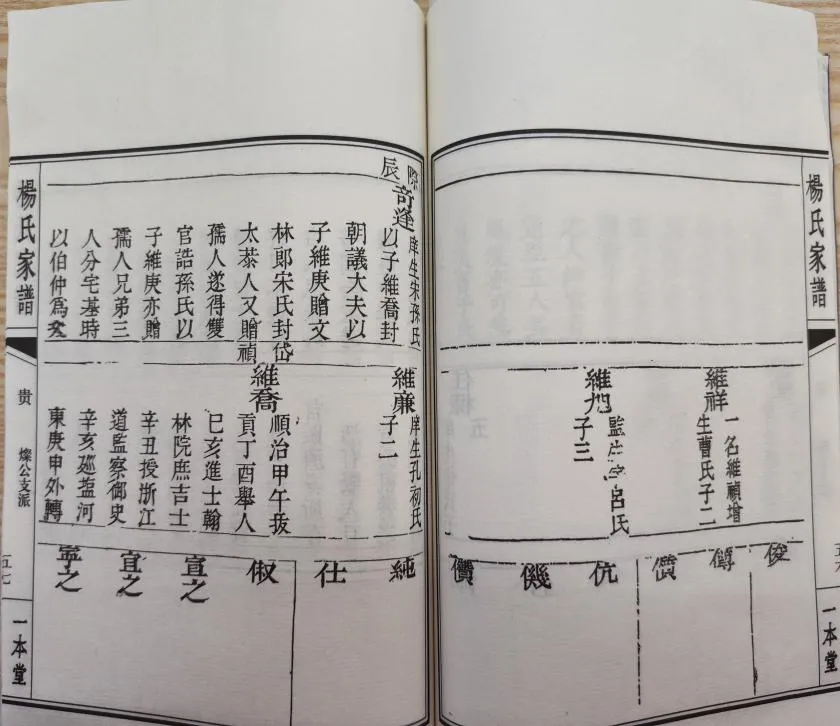 楊氏家譜
一本堂
維祥
一名維禎增
生曹氏子二
維旭
監生呂氏
子三
俊
僔
儥
伉
僟
儥
際辰
奇逢
庠生宋孫氏
以子維喬封
朝議大夫以
子維庚贈文
林郎宋氏封
太恭人又贈禎
孺人遂得雙
官誥孫氏以
子維庚亦贈
孺人兄弟三
人分宅基時
以伯仲爲
維廉
庠生孔初氏
子二
維喬
順治甲午拔
貢丁酉舉人
巳亥進士翰
林院庶吉士
辛丑授浙江
道監察御史
辛亥廵塩河
東庚申外轉
純
仕
俶
宣之
宜之
寍之
楊氏家譜
贵
燦公支派
五七
一本堂